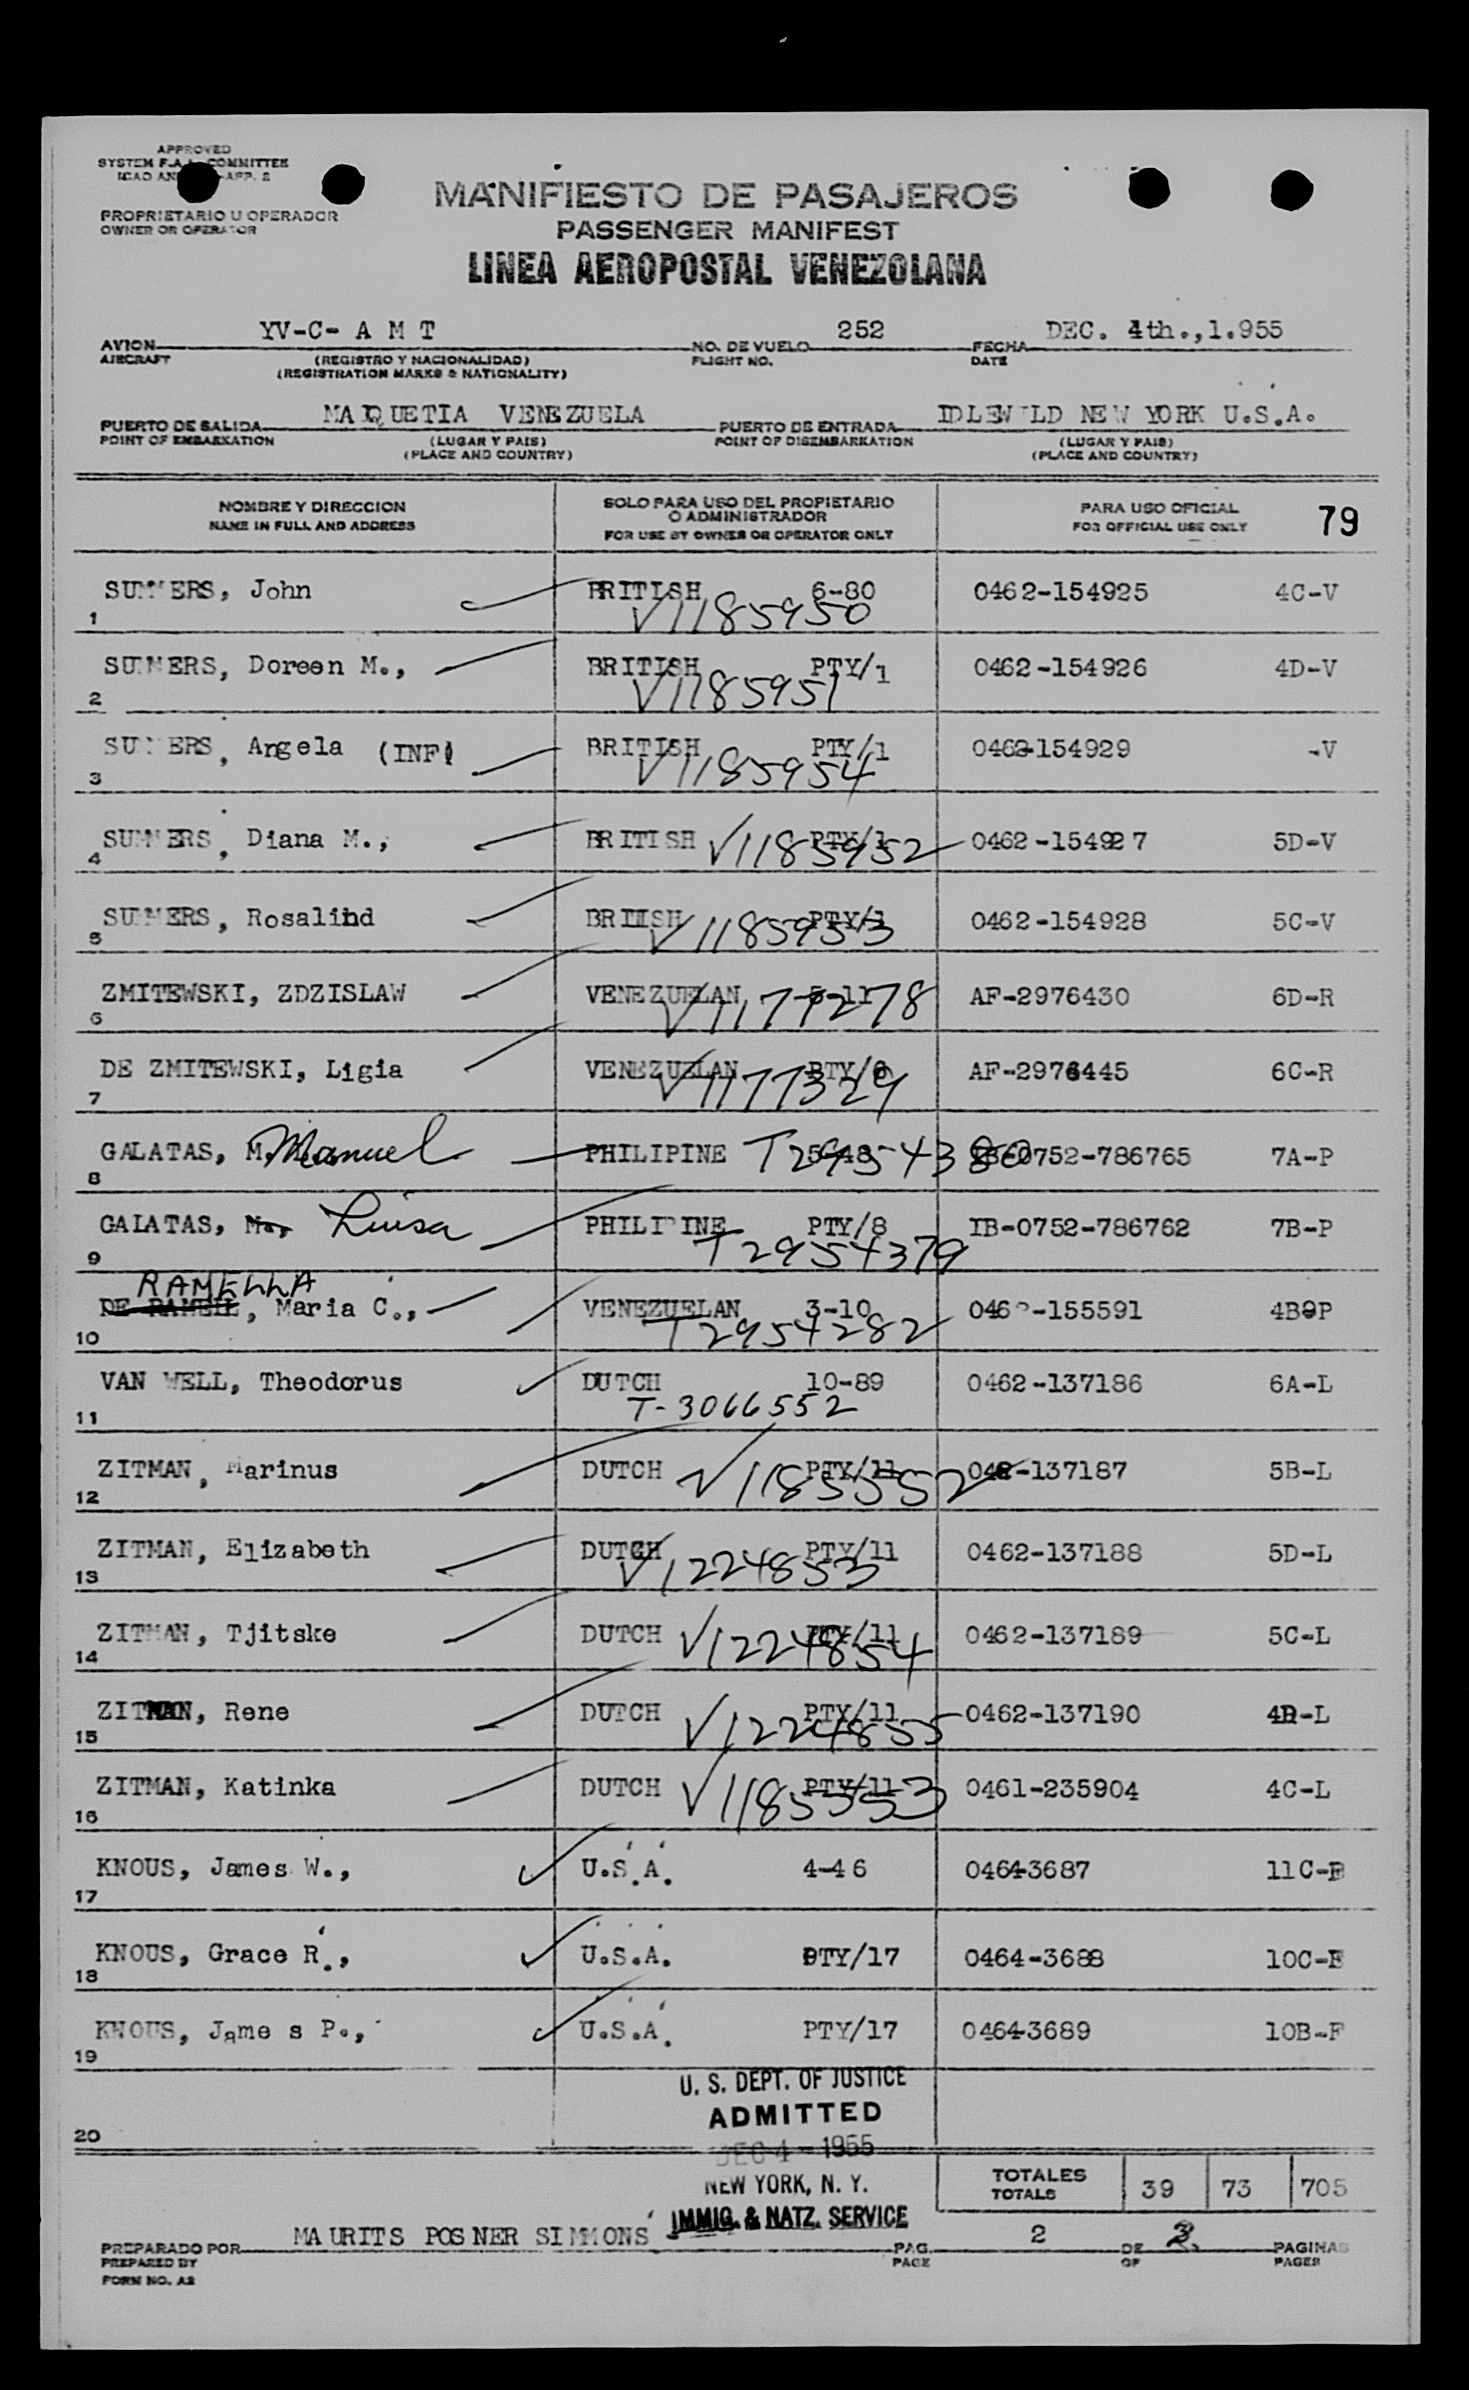 APPROVED
SYSTEM F.A.L. COMMITTEE
ICAO AN APP. 2
PROPRIETARIO U OPERADOR
OWNER OR OPERATOR
MANIFIESTO DE PASAJEROS
PASSENGER MANIFEST
LINEA AEROPOSTAL VENEZOLANA
AVION YV-C- A M T NO. DE VUELO 252 FECHA DEC. 4th.,1.955
AIRCRAFT (REGISTRO Y NACIONALIDAD) FLIGHT NO. DATE
(REGISTRATION MARKS & NATIONALITY)
PUERTO DE SALIDA MAIQUETIA VENEZUELA PUERTO DE ENTRADA IDLEWILD NEW YORK U.S.A.
POINT OF EMBARKATION (LUGAR Y PAIS) POINT OF DISEMBARKATION (LUGAR Y PAIS)
(PLACE AND COUNTRY) (PLACE AND COUNTRY)
NOMBRE Y DIRECCION SOLO PARA USO DEL PROPIETARIO PARA USO OFICIAL 79
NAME IN FULL AND ADDRESS O ADMINISTRADOR FOR OFFICIAL USE ONLY
FOR USE BY OWNER OR OPERATOR ONLY
SUMMERS, John BRITISH 6-80 0462-154925 4C-V
1 V1185950
SUMMERS, Doreen M., BRITISH PTY/1 0462-154926 4D-V
2 V1185951
SUMMERS, Angela (INF) BRITISH PTY/1 0462-154929 -V
3 V1185954
SUMMERS, Diana M., BRITISH V1185952 PTY/1 0462-154927 5D-V
4
SUMMERS, Rosalind BRITISH PTY/1 0462-154928 5C-V
5 V1185953
ZMITEWSKI, ZDZISLAW VENEZUELAN 5-11 AF-2976430 6D-R
6 V1177278
DE ZMITEWSKI, Ligia VENEZUELAN PTY/6 AF-2976445 6C-R
7 V1177329
GALATAS, M. Manuel PHILIPINE T2954380 IB-0752-786765 7A-P
8
GALATAS, M., Luisa PHILIPINE PTY/8 IB-0752-786762 7B-P
9 T2954379
RAMELLA
DE RAMELL, Maria C., VENEZUELAN 3-10 0462-155591 4B-P
10 T2954282
VAN WELL, Theodorus DUTCH 10-89 0462-137186 6A-L
11 T-3066552
ZITMAN, Marinus DUTCH V1185552 PTY/11 042-137187 5B-L
12
ZITMAN, Elizabeth DUTCH PTY/11 0462-137188 5D-L
13 V1224853
ZITMAN, Tjitske DUTCH V1224854 PTY/11 0462-137189 5C-L
14
ZITMAN, Rene DUTCH V1224855 PTY/11 0462-137190 4D-L
15
ZITMAN, Katinka DUTCH V1185553 PTY/11 0461-235904 4C-L
16
KNOUS, James W., U.S.A. 4-46 0464-3687 11C-F
17
KNOUS, Grace R., U.S.A. PTY/17 0464-3688 10C-F
18
KNOUS, James P., U.S.A. PTY/17 0464-3689 10B-F
19
U. S. DEPT. OF JUSTICE
ADMITTED
20
DEC 4 - 1955
NEW YORK, N. Y.
IMMIG. & NATZ. SERVICE
TOTALES
TOTALS 39 73 705
PREPARADO POR MAURITS POSNER SIMMONS PAG. 2 DE 3 PAGINAS
PREPARED BY PAGE OF PAGES
FORM NO. A2